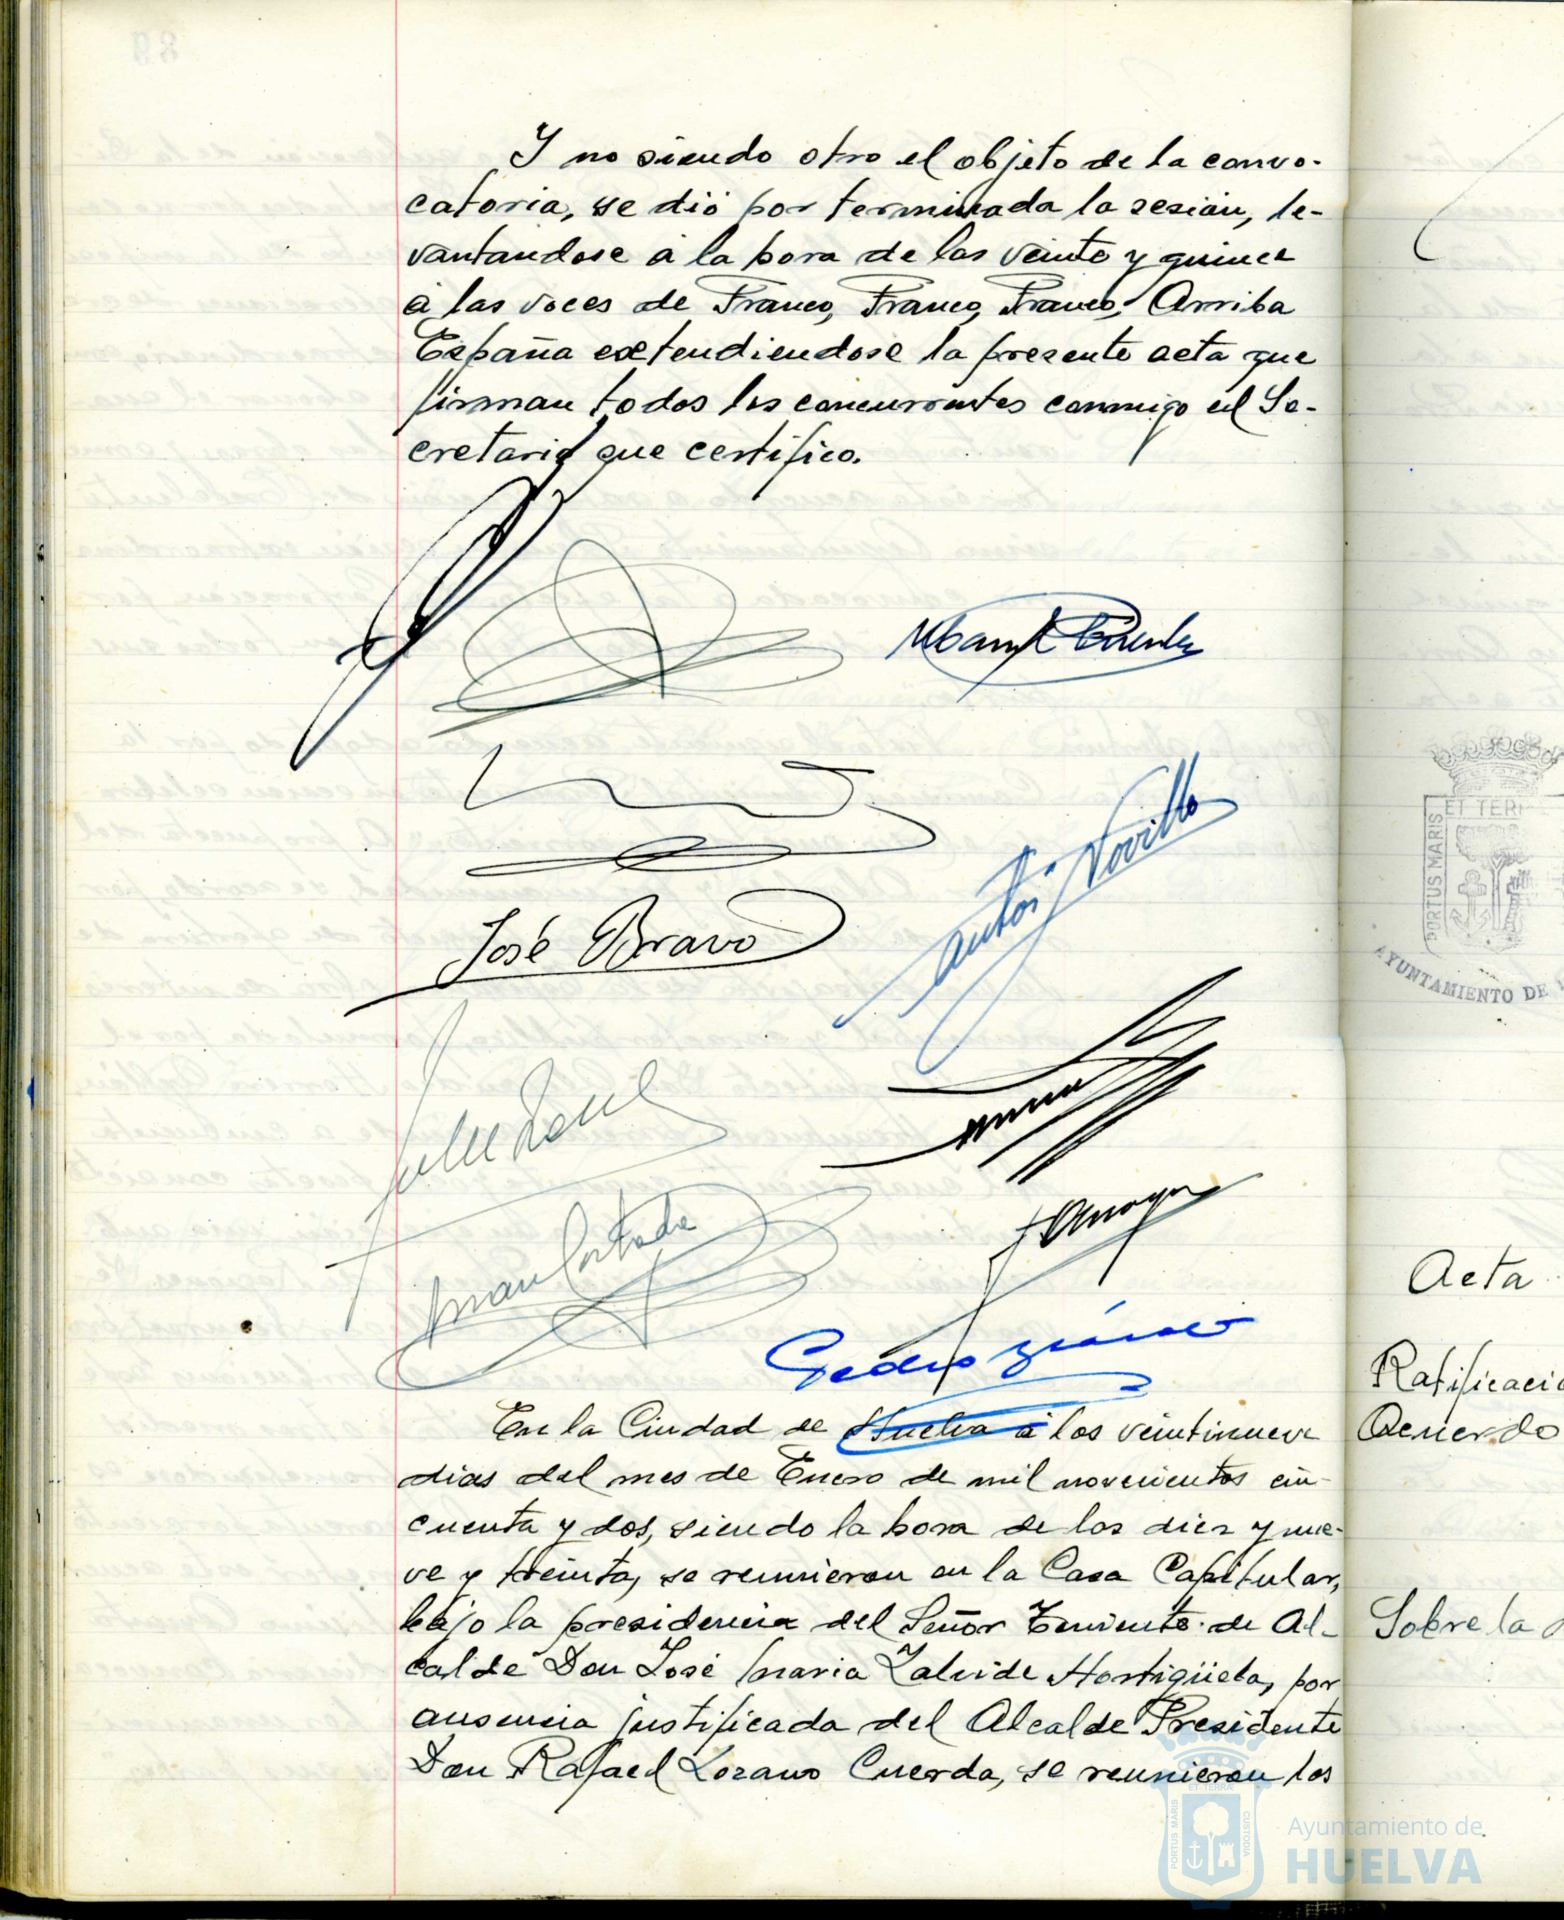 Y no siendo otro el objeto de la convo-
catoria, se dió por terminada la sesión, le-
vantandose á la hora de las veinte y quince
á las voces de Franco, Franco, Franco, Arriba
España extendiendose la presente acta que
firman todos los concurrentes conmigo el Se-
cretario que certifico.
José Bravo
Pedro
En la Ciudad de Huelva á los veintinueve
dias del mes de Enero de mil novecientos cin-
cuenta y dos, siendo la hora de las diez y nue-
ve y treinta, se reunieron en la Casa Capitular,
bajo la presidencia del Señor Teniente de Al-
calde Don José Maria Zalvide Hortigüela, por
ausencia justificada del Alcalde Presidente
Don Rafael Lozano Cuerda, se reunieron los
PORTUS MARIS
ET TERR
AYUNTAMIENTO DE
Acta
Ratificació
Acuerdo
Sobre la
PORTUS MARIS ET TERRA CUSTODIA
Ayuntamiento de
HUELVA